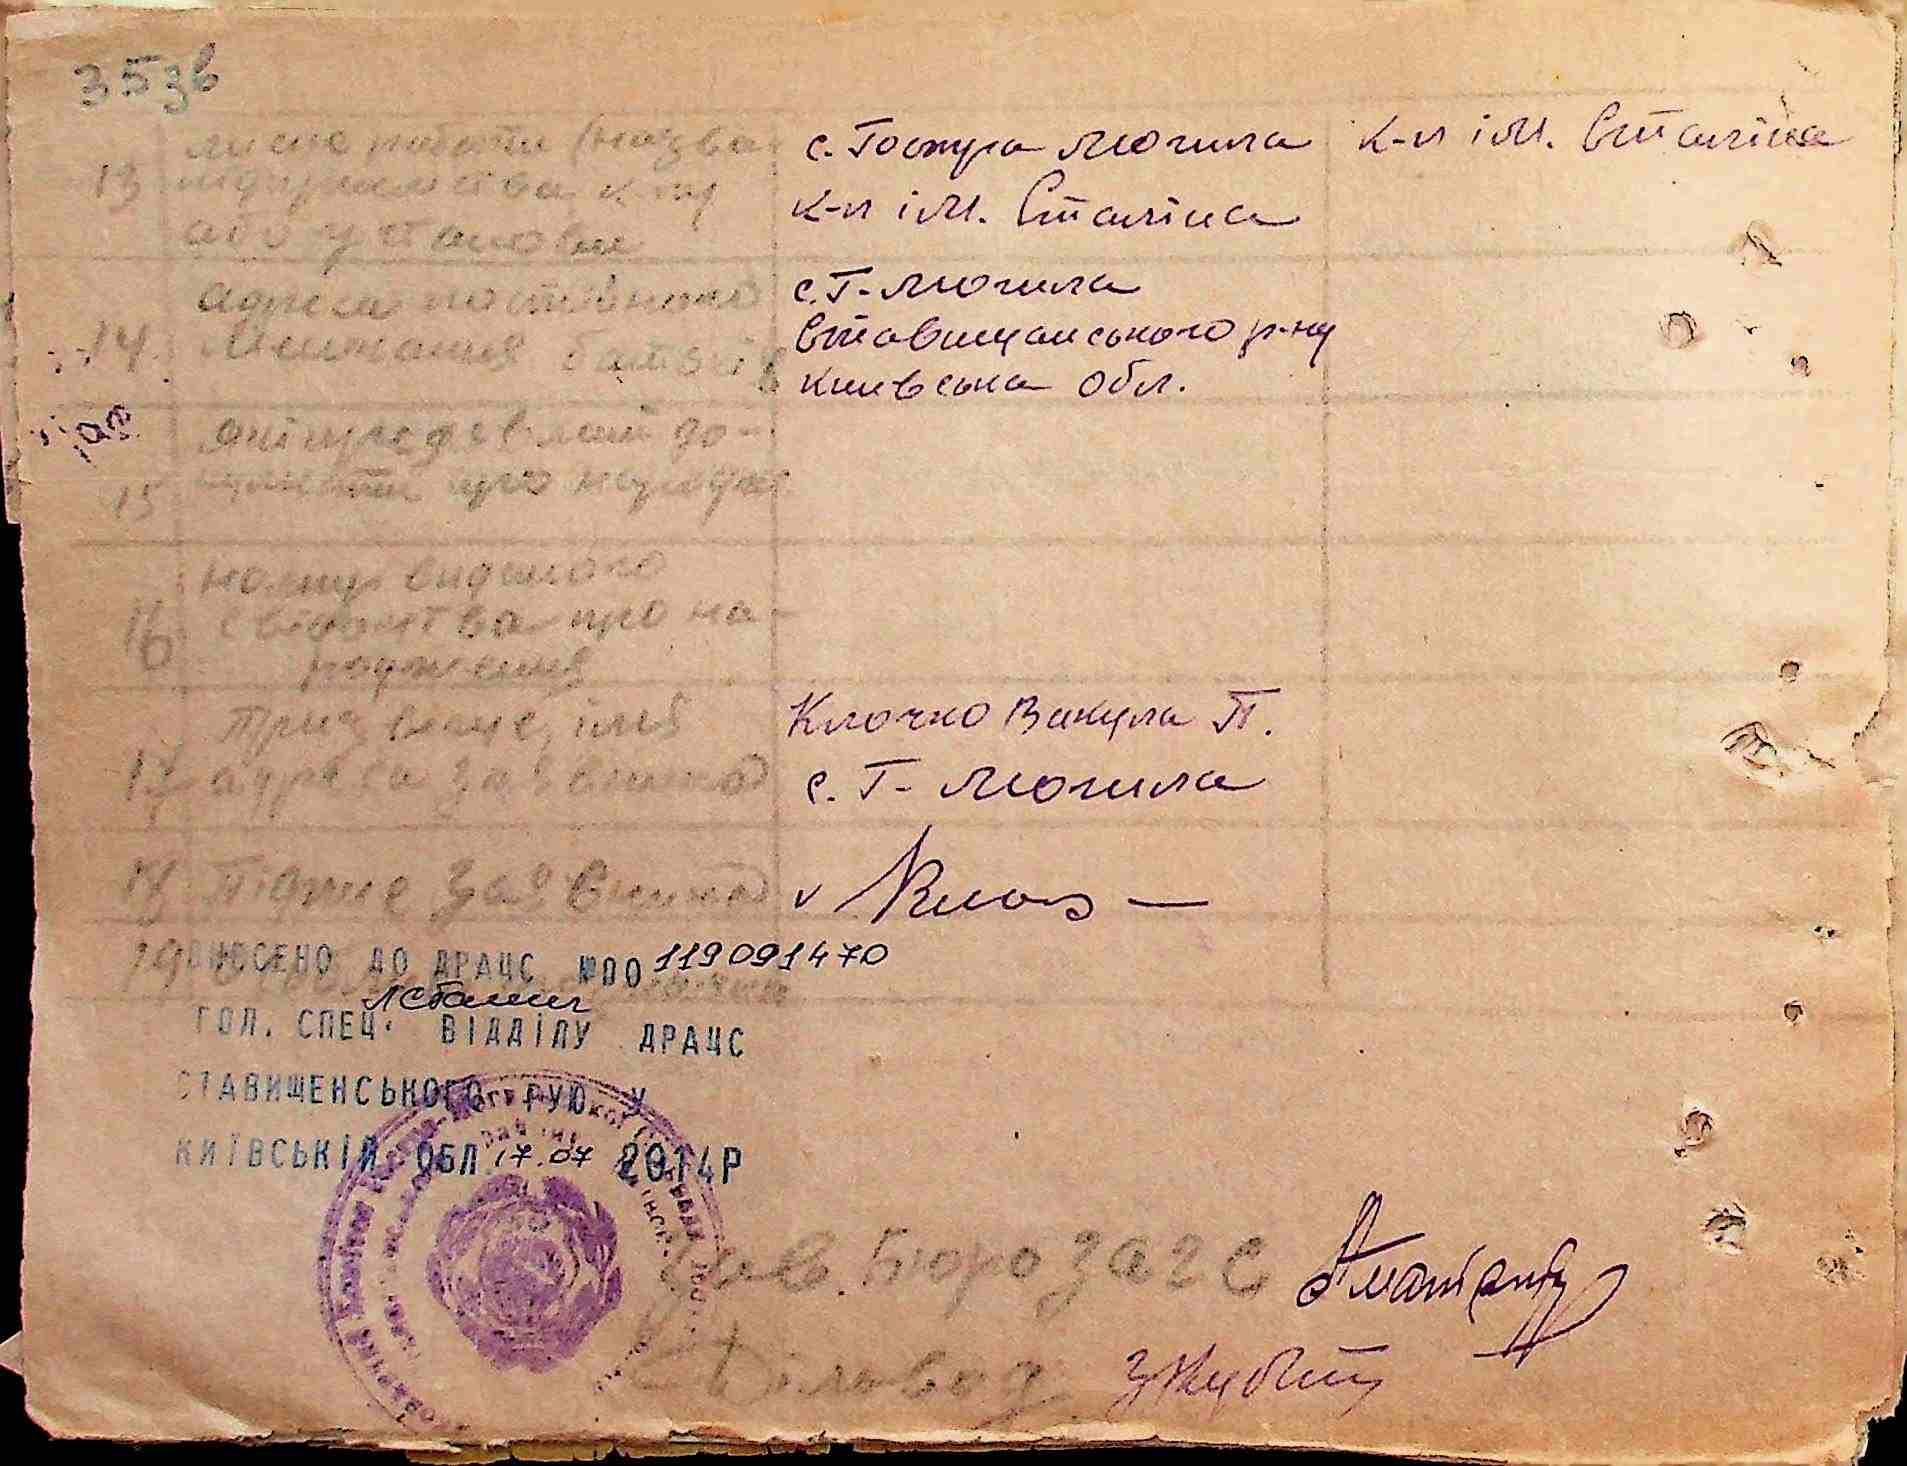 35зв
13 місце роботи (назва підприємства к-пу або установи
с. Гостра Могила к-п ім. Сталіна
к-п ім. Сталіна
14 адреса постійного мешкання батьків
с. Г-Могила
Ставищанського р-ну
Київська обл.
15 які пред'явлений документи про народж.
16 номер виданого
свідоцтва про на-
родження
17 Призвище, імя
адреса заявника
Клочко Вакула П.
с. Г- Могила
18 Підпис заявника
v Клоч
19
ВНЕСЕНО ДО ДРАЦС №00119091470
ГОЛ. СПЕЦ. ВІДДІЛУ ДРАЦС
СТАВИЩЕНСЬКОГО РУЮ У
КИЇВСЬКІЙ ОБЛ. 17.07 2014Р
Зав. Бюро загс
Діловод